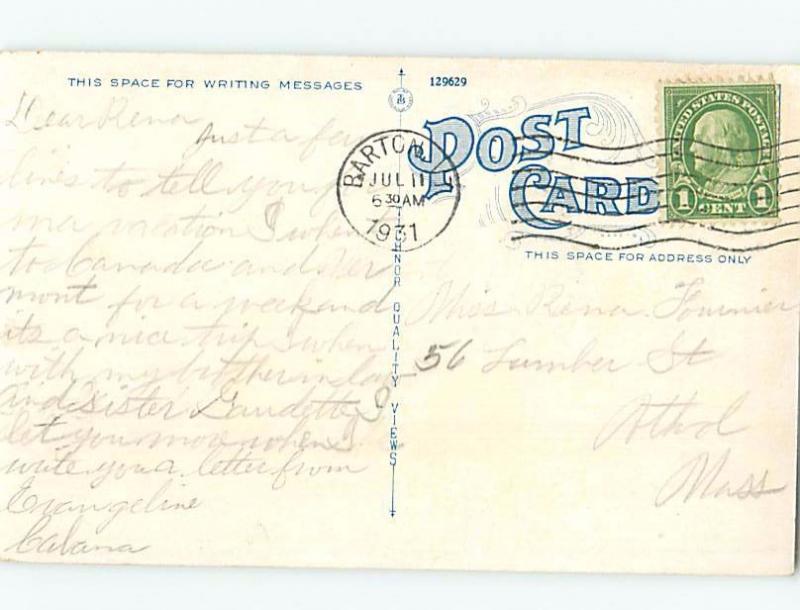 THIS SPACE FOR WRITING MESSAGES
129629
POST CARD
THIS SPACE FOR ADDRESS ONLY
UNITED STATES POSTAGE
1 CENT 1
BARTON
JUL 11
6 30 AM
1931
TICHNOR QUALITY VIEWS
Dear Rena
Just a few
lines to tell you
ma vacation I when
to Canada and Ver
mont for a weekend
its a nice trip I when
with my brother in law
and sister Gaudette
let you more when I
write you a letter from
Evangeline
Cabana
Miss Rena Fournier
56 Lumber St
Athol
Mass